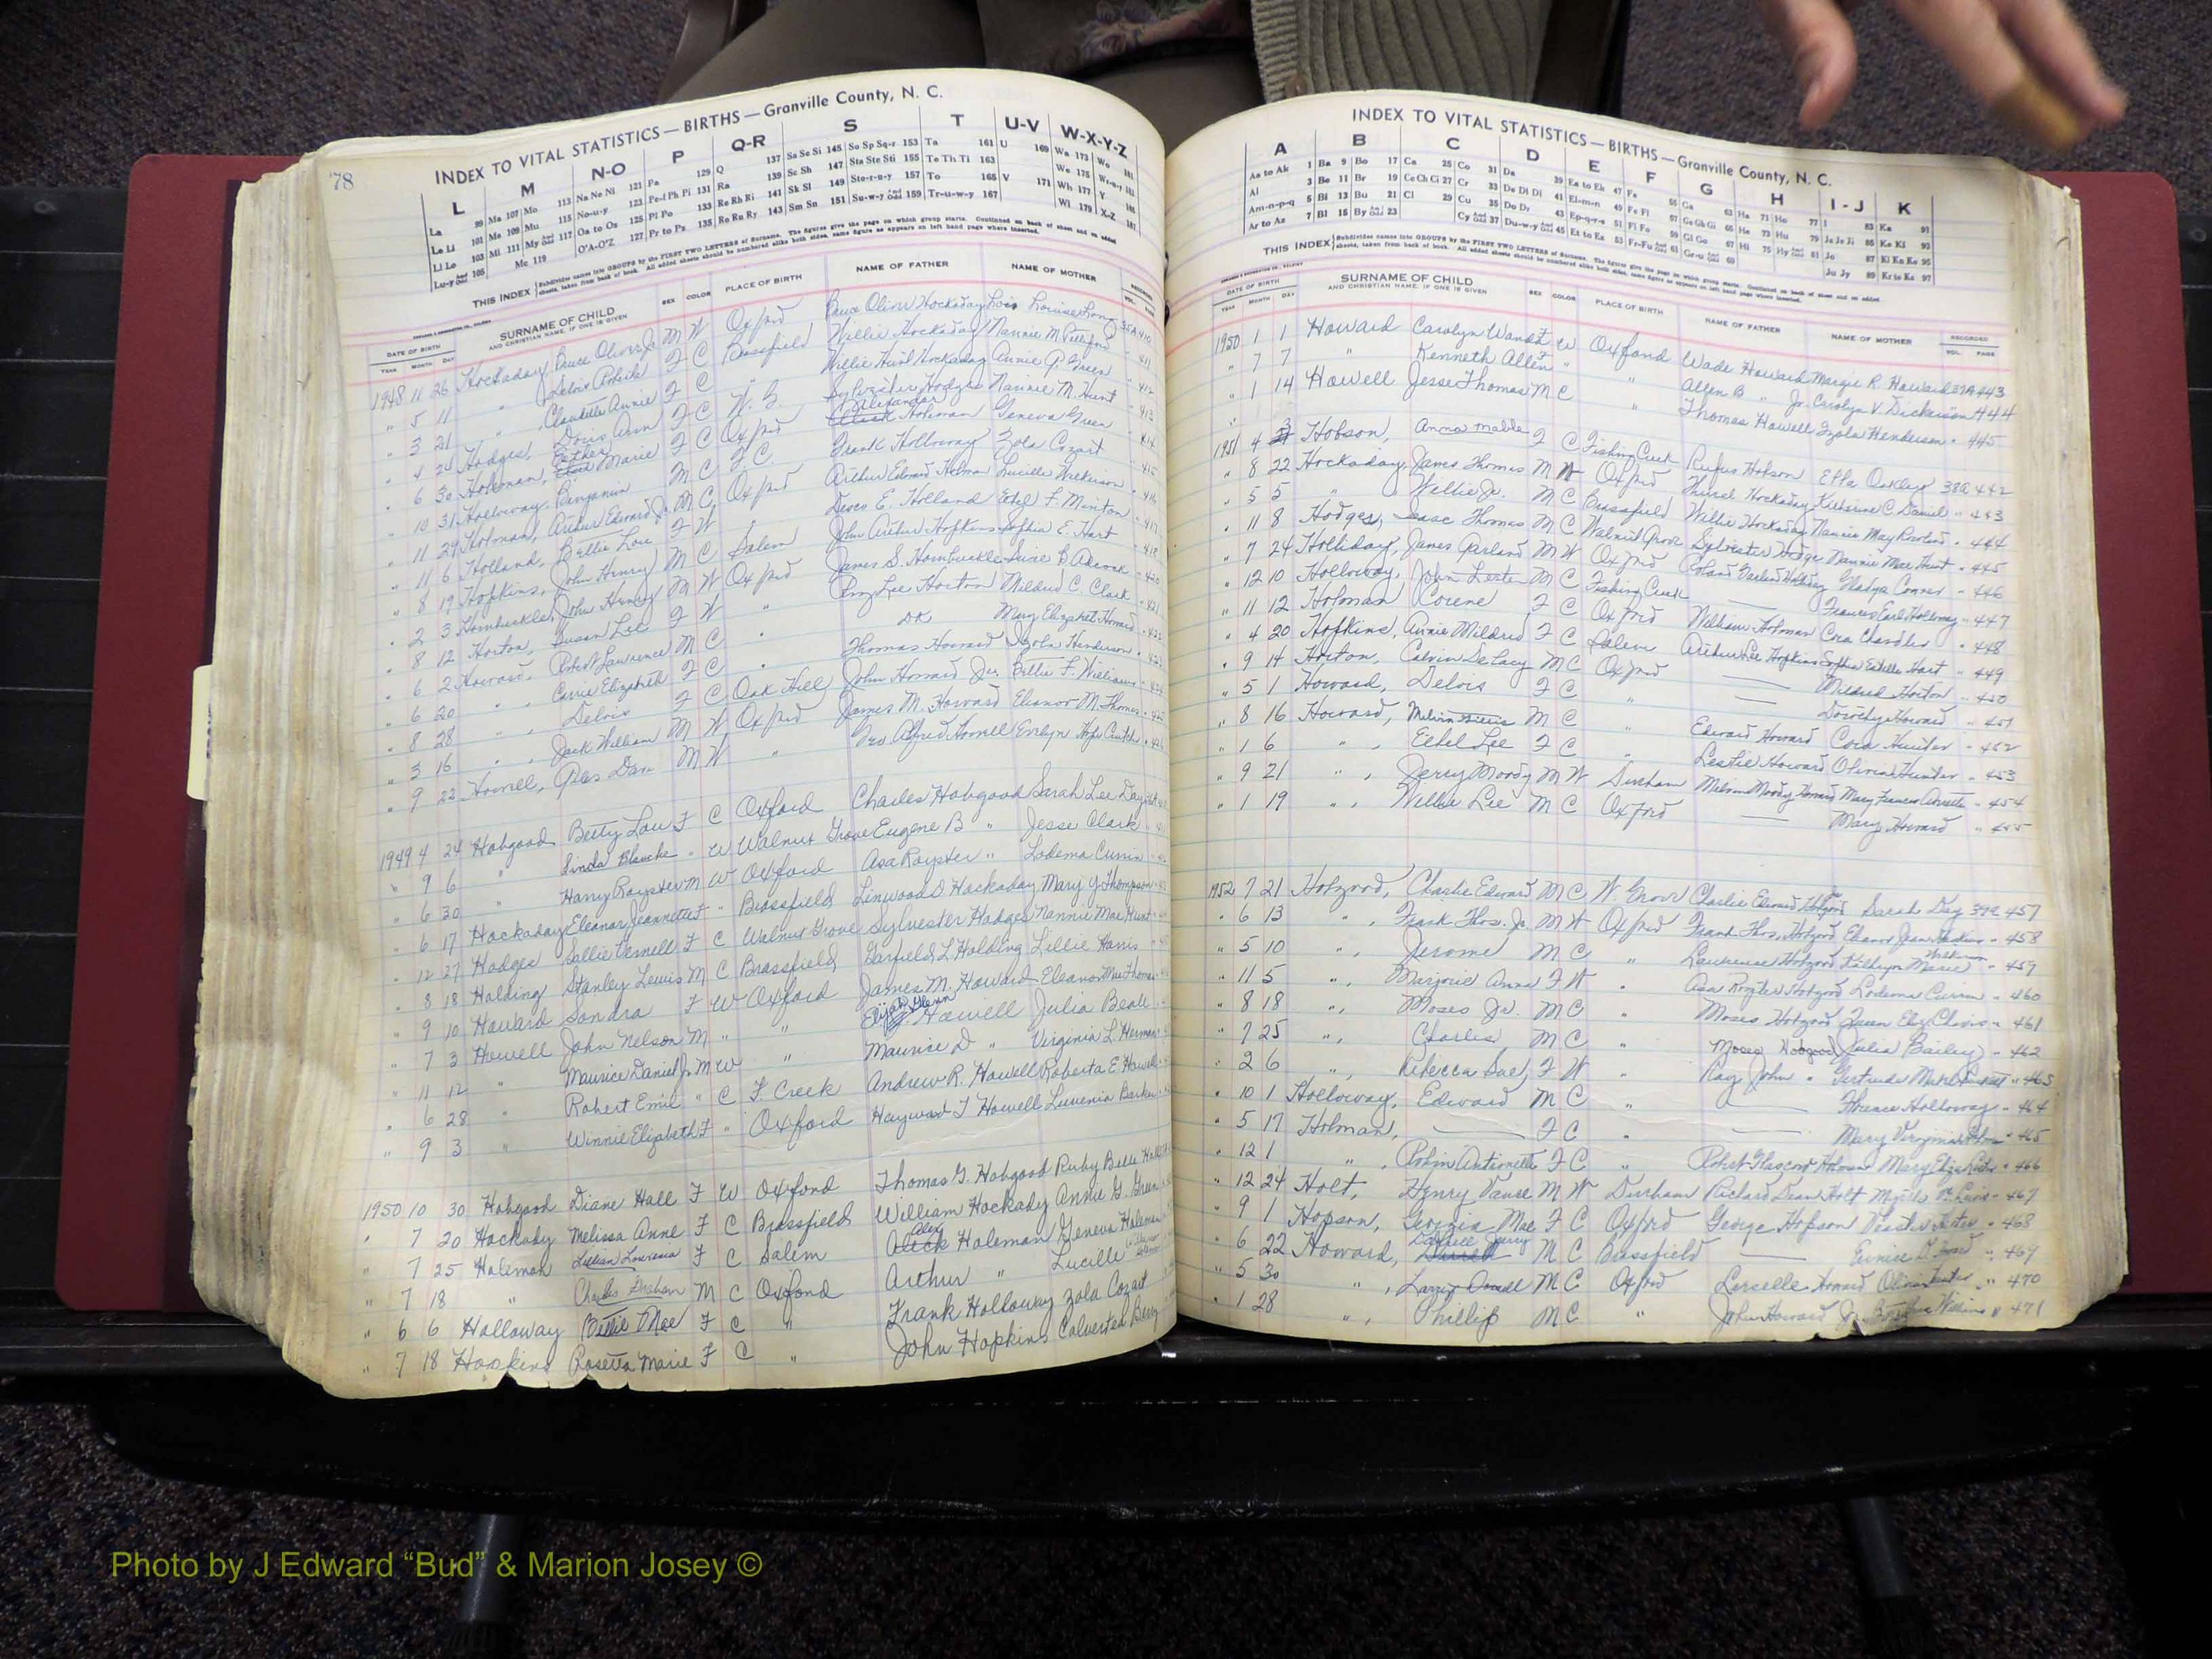 78
INDEX TO VITAL STATISTICS — BIRTHS — Granville County, N. C.
L M N-O P Q-R S T U-V W-X-Y-Z
La 99 Ma 107 Mo 113 Na Ne Ni 121 Pa 129 Q 137 Sa Se Si 145 So Sp Sq-r 153 Ta 161 U 169 Wa 173 Wo 181
Le Li 101 Me 109 Mu 115 No-u-y 123 Pe-f Ph Pi 131 Ra 139 Sc Sh 147 Sta Ste Sti 155 Te Th Ti 163 We 175
Li Lo 103 Mi 111 My 117 Oa to Os 125 Pl Po 133 Re Rh Ri 141 Sk Sl 149 Sto-r-u-y 157 To 165 V 171 Wh 177 Y
Lu-y 105 Mc 119 O'A-O'Z 127 Pr to Pz 135 Ro Ru Ry 143 Sm Sn 151 Su-w-y 159 Tr-u-w-y 167 Wi 179 X-Z
THIS INDEX Subdivides names into GROUPS by the FIRST TWO LETTERS of Surname. The figures give the page on which group starts. Continued on back of sheet and on added
sheets, taken from back of book. All added sheets should be numbered alike both sides, same figure as appears on left hand page where inserted.
DATE OF BIRTH SURNAME OF CHILD SEX COLOR PLACE OF BIRTH NAME OF FATHER NAME OF MOTHER RECORDED
YEAR MONTH DAY AND CHRISTIAN NAME, IF ONE IS GIVEN VOL. PAGE
1948 11 26 Hockaday, Bruce Oliver Jr. M W Oxford Bruce Oliver Hockaday Lois Louise Long
" 5 11 " F C Brassfield Willie Hockaday Nannie M.
" 3 21 " Claudette Annie F C " Willie Hunt Hockaday Annie G. Green
" 4 25 Hodges, Doris Ann F C W. G. Sylvester Hodges Nannie M. Hunt
" 6 30 Holeman, Esther Marie F C Oxford Alexander Holeman Geneva Green
" 10 31 Holloway, Benjamin M C F. C. Frank Holloway Zola Cozart
" 11 29 Holman, Arthur Edward Jr. M C Oxford Arthur Edward Holman Lucille Wilkerson
" 11 6 Holland, Bettie Lou F W E. Holland Ethel F. Minton
" 8 19 Hopkins, John Henry M C Salem John Arthur Hopkins Sophia E. Hart
" 2 3 Hornbuckle, John Henry M W Oxford James S. Hornbuckle B Adcock
" 8 12 Horton, Susan Lee F W " Lee Horton Mildred C. Clark
" 6 2 Howard, Robert Lawrence M C " DK Mary Elizabeth Howard
" 6 20 " , Carrie Elizabeth F C " Thomas Howard Izola Henderson
" 8 28 " , Delois F C Oak Hill John Howard Jr. Bettie F. Williams
" 3 16 " , Jack William M W Oxford James M. Howard Eleanor M. Thomas
" 9 22 Howell, Dan M W " Geo. Alfred Howell Evelyn Hope
1949 4 24 Hobgood Betty Lou F C Oxford Charles Hobgood Sarah Lee Day
" 9 6 " Linda Blanche " W Walnut Grove Eugene B " Jesse Clark
" 6 30 " Harry Royster M W Oxford Asa Royster " Lodema Currin
" 6 17 Hockaday Eleanor Jeannette F " Brassfield Linwood D Hockaday Mary G Thompson
" 12 27 Hodges Sallie Vernell F C Walnut Grove Sylvester Hodges Nannie Mae Hunt
" 8 18 Holding Stanley Lewis M C Brassfield Garfield L Holding Lillie Harris
" 9 10 Howard Sandra F W Oxford James M. Howard Eleanor Mae Thomas
" 7 3 Howell John Nelson M " " Elijah Glenn Howell Julia Beale
" 11 12 " Maurice Daniel Jr. M W " Maurice D " Virginia L. Herman
" 6 28 " Robert Emil " C F. Creek Andrew R. Howell Roberta E. Howell
" 9 3 " Winnie Elizabeth F " Oxford Hayward T Howell Luvenia Barker
1950 10 30 Hobgood Diane Hall F W Oxford Thomas G. Hobgood Ruby Belle Hall
" 7 20 Hockady Melissa Anne F C Brassfield William Hockady Annie G. Green
" 7 25 Holeman Lillian F C Salem Alex Holeman Geneva Holeman
" 7 18 " Charles Graham M C Oxford Arthur " Lucille
" 6 6 Holloway Bettie Mae F C " Frank Holloway Zola Cozart
" 7 18 Hopkins Rosetta Marie F C " John Hopkins
INDEX TO VITAL STATISTICS — BIRTHS — Granville County, N. C.
A B C D E F G H I-J K
Aa to Ak 1 Ba 9 Bo 17 Ca 25 Co 31 Da 39 Ea to Ek 47 Fa 55 Ga 63 Ha 71 Ho 77 I 83 Ka 91
Al 3 Be 11 Br 19 Ce Ch Ci 27 Cr 33 De Di Dl 41 El-m-n 49 Fe Fi 57 Ge Gh Gi 65 He 73 Hu 79 Ja Je Ji 85 Ke Ki 93
Am-n-p-q 5 Bi 13 Bu 21 Cl 29 Cu 35 Do Dr 43 Ep-q-r-s 51 Fl Fo 59 Gl Go 67 Hi 75 Hy 81 Jo 87 Kl Kn Ko 95
Ar to Az 7 Bl 15 By 23 Cy 37 Du-w-y 45 Et to Ez 53 Fr-Fu 61 Gr-u 69 Ju Jy 89 Kr to Kz 97
THIS INDEX Subdivides names into GROUPS by the FIRST TWO LETTERS of Surname. The figures give the page on which group starts. Continued on back of sheet and on added
sheets, taken from back of book. All added sheets should be numbered alike both sides, same figure as appears on left hand page where inserted.
DATE OF BIRTH SURNAME OF CHILD SEX COLOR PLACE OF BIRTH NAME OF FATHER NAME OF MOTHER RECORDED
YEAR MONTH DAY AND CHRISTIAN NAME, IF ONE IS GIVEN VOL. PAGE
1950 1 1 Howard Carolyn Wanda F W Oxford Wade Howard Margie R. Howard 37A 443
" 7 7 " Kenneth Allen " " Allen B " Jr. Carolyn V. Dickerson 444
" 1 14 Howell Jesse Thomas M C " Thomas Howell Izola Henderson " 445
1951 4 Hobson, Anna Mable F C Fishing Creek Rufus Hobson Effa Oakley 38A 442
" 8 22 Hockaday, James Thomas M W Oxford Hockaday Katherine C. Daniel " 443
" 5 5 " , Willie Jr. M C Brassfield Willie Hockaday Nannie May " 444
" 11 8 Hodges, Isaac Thomas M C Walnut Grove Sylvester Hodge Nannie Mae Hunt " 445
" 7 24 Holliday, James Garland M W Oxford Roland Garland Holliday Gladys Conner " 446
" 12 10 Holloway, John Lester M C Fishing Creek —— Frances Earl Holloway " 447
" 11 12 Holman Corene F C Oxford William Holman Cora Chandler " 448
" 4 20 Hopkins, Annie Mildred F C Salem Arthur Lee Hopkins Sophia Estelle Hart " 449
" 9 14 Horton, Calvin DeLacy M C Oxford —— Mildred Horton " 450
" 5 1 Howard, Delois F C " —— Dorothy Howard " 451
" 8 16 Howard, Melvin M C " Edward Howard Cora Hunter " 452
" 1 6 " , Ethel Lee F C " Leslie Howard Olivia Hunter " 453
" 9 21 " , Jerry Moody M W Durham Melvin Moody Howard Mary Frances " 454
" 1 19 " , Willie Lee M C Oxford —— Mary Howard " 455
1952 7 21 Hobgood, Charlie Edward M C W. Grove Charlie Edward Hobgood Sarah Day 39A 457
" 6 13 " , Frank Thos. Jr. M W Oxford Frank Thos. Hobgood Eleanor Jean " 458
" 5 10 " , Jerome M C " Lawrence Hobgood Kathryn Marie Wilkerson " 459
" 11 5 " , Marjorie Anna F W " Asa Royster Hobgood Lodema Currin " 460
" 8 18 " , Moses Jr. M C " Moses Hobgood Queen Eliz Chavis " 461
" 7 25 " , Charles M C " Moses Hobgood Julia Bailey " 462
" 2 6 " , Rebecca Sue F W " Ray John " Gertrude " 463
" 10 1 Holloway, Edward M C " —— Florence Holloway " 464
" 5 17 Holman, —— F C " —— Mary Virginia Holman " 465
" 12 1 " , Robin Antionette F C " Robert Glascow Holman Mary Eliza " 466
" 12 24 Holt, Henry Vance M W Durham Richard Dean Holt " 467
" 9 1 Hopson, Georgia Mae F C Oxford George Hopson " 468
" 6 22 Howard, Jerry M C Brassfield —— Eunice " 469
" 5 30 " , Larry M C Oxford Howard " 470
" 1 28 " , Phillip M C " John Howard Jr. Williams " 471
Photo by J Edward “Bud” & Marion Josey ©